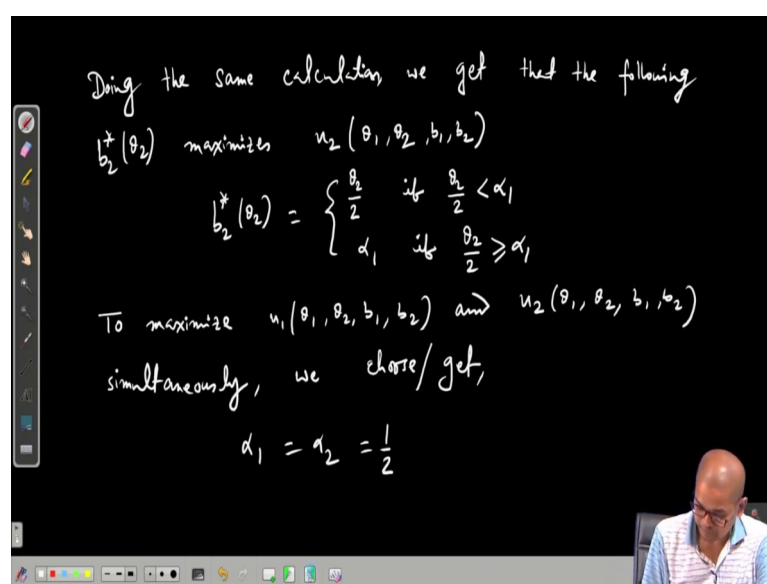 Doing the same calculation, we get that the following
b₂*(θ₂) maximizes u₂(θ₁, θ₂, b₁, b₂)
b₂*(θ₂) = { θ₂/2 if θ₂/2 < α₁
α₁ if θ₂/2 ⩾ α₁
To maximize u₁(θ₁, θ₂, b₁, b₂) and u₂(θ₁, θ₂, b₁, b₂)
simultaneously, we choose/get,
α₁ = α₂ = 1/2